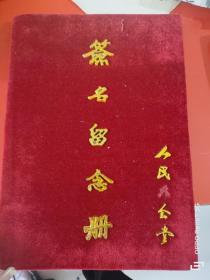 签名留念册
人民大会堂